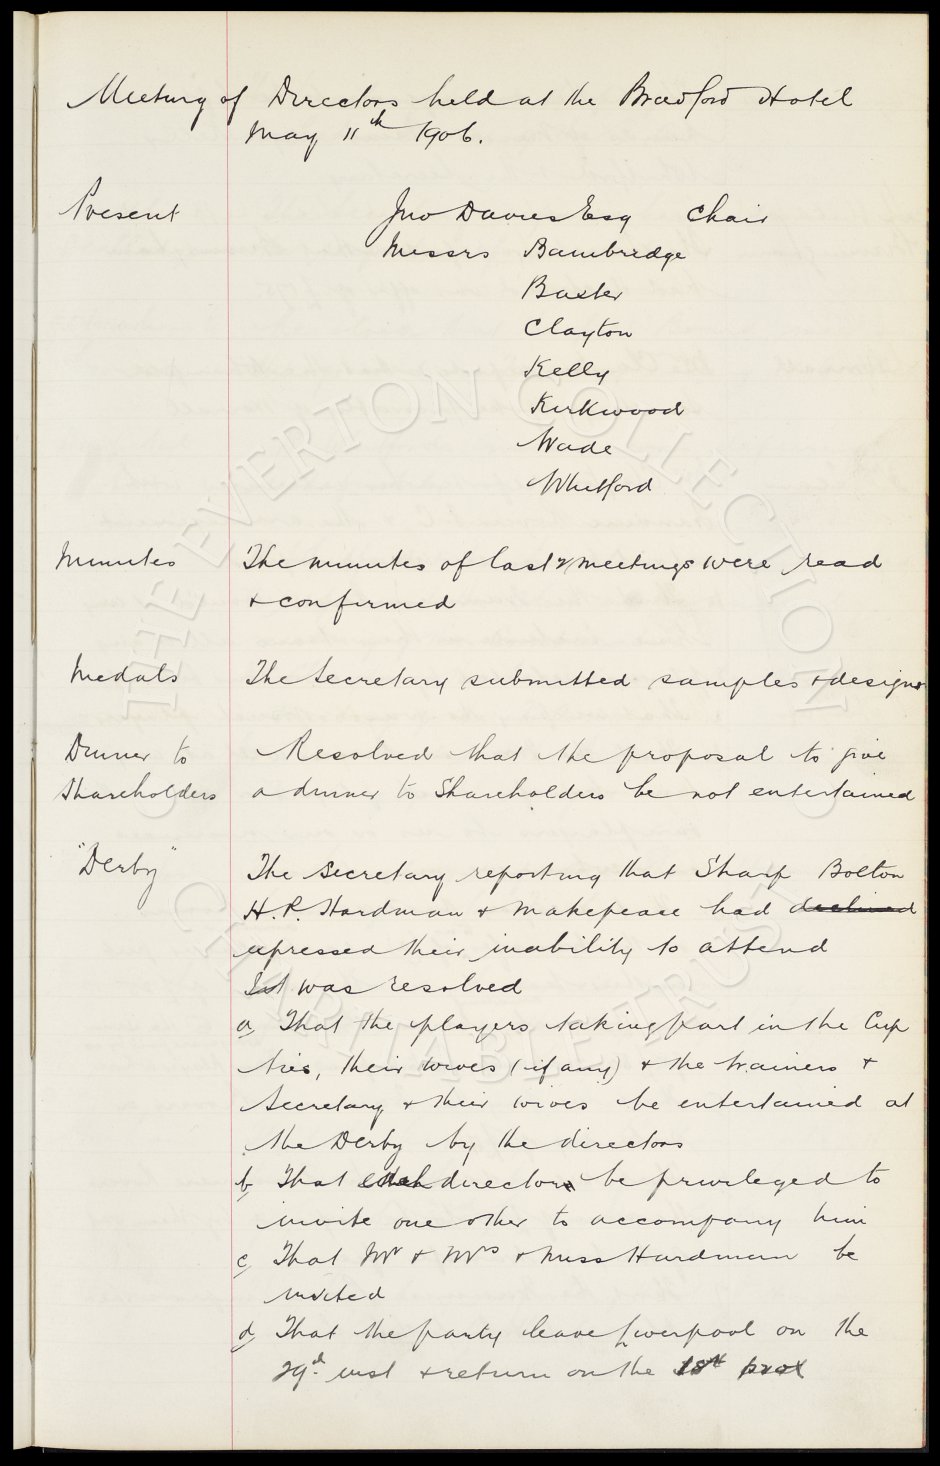 Meeting of Directors held at the Bradford Hotel
May 11th 1906.
Present Jno Davies Esq Chair
Messrs Bainbridge
Baxter
Clayton
Kelly
Kirkwood
Wade
Whitford
Minutes The minutes of last 2 meetings were read
& confirmed
Medals The Secretary submitted samples & designs
Dinner to Resolved that the proposal to give
Shareholders a dinner to Shareholders be not entertained
"Derby" The Secretary reporting that Sharp Bolton
H.P. Hardman & Makepeace had declined
expressed their inability to attend
It was resolved
a, That the players taking part in the Cup
ties, their wives (if any) & the trainers &
Secretary & their wives be entertained at
the Derby by the directors
b, That each director be privileged to
invite one other to accompany him
c, That Mr & Mrs & Miss Hardman be
invited
d, That the party leave Liverpool on the
29th inst & return on the 1st prox
THE EVERTON COLLECTION
CHARITABLE TRUST